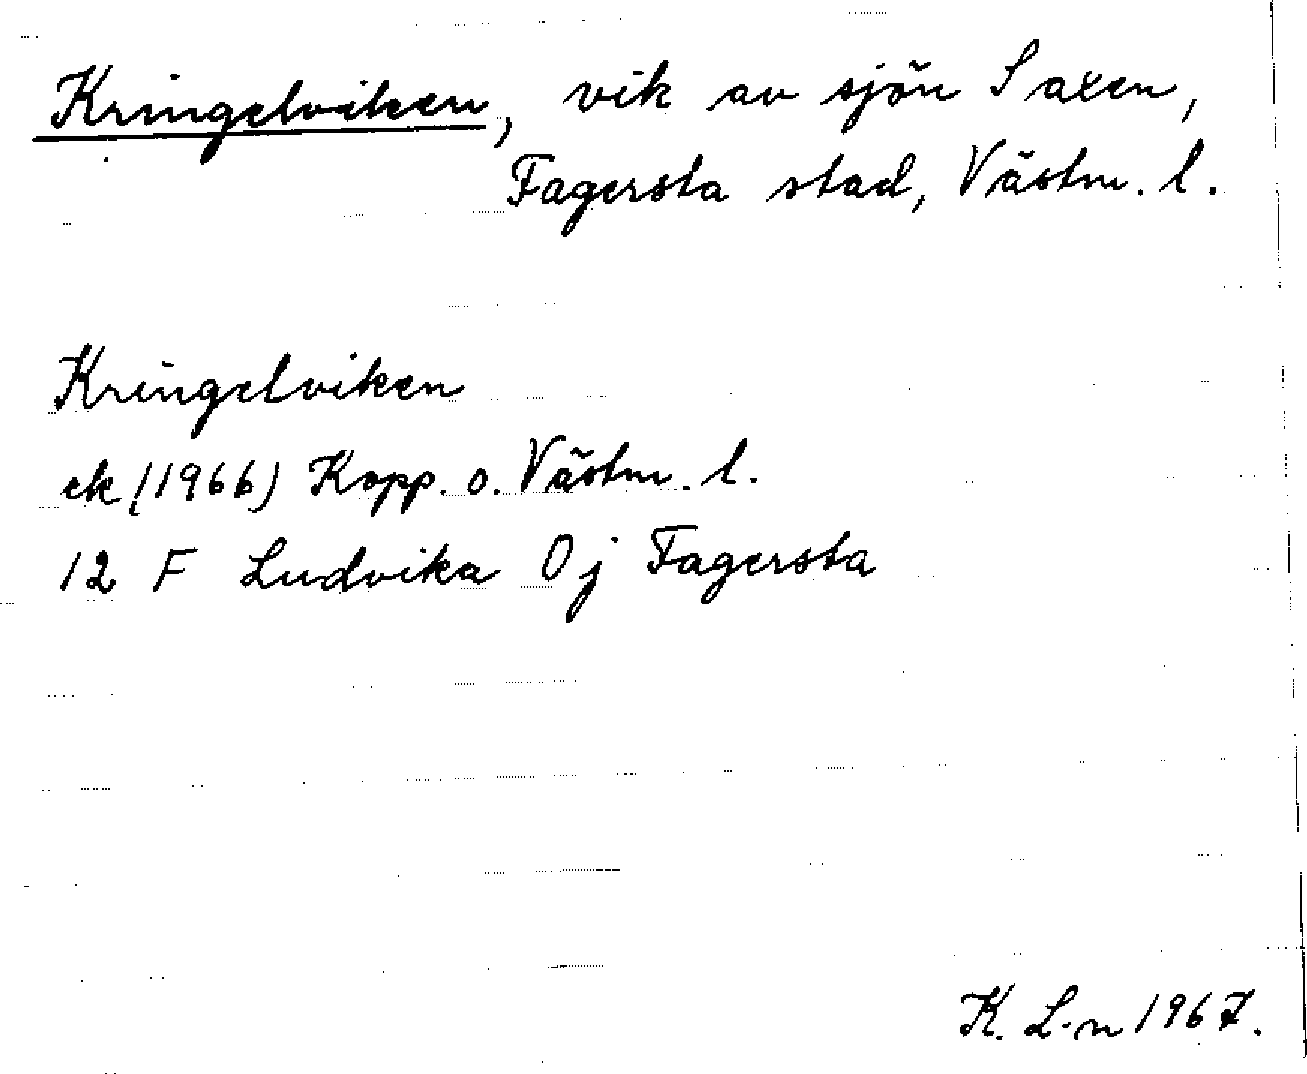 Kringelviken, vik av sjön Saxen,
Fagersta stad, Västm. l.
Kringelviken
ek (1966) Kopp. o. Västm. l.
12 F Ludvika 0j Fagersta
K. L-n 1967.